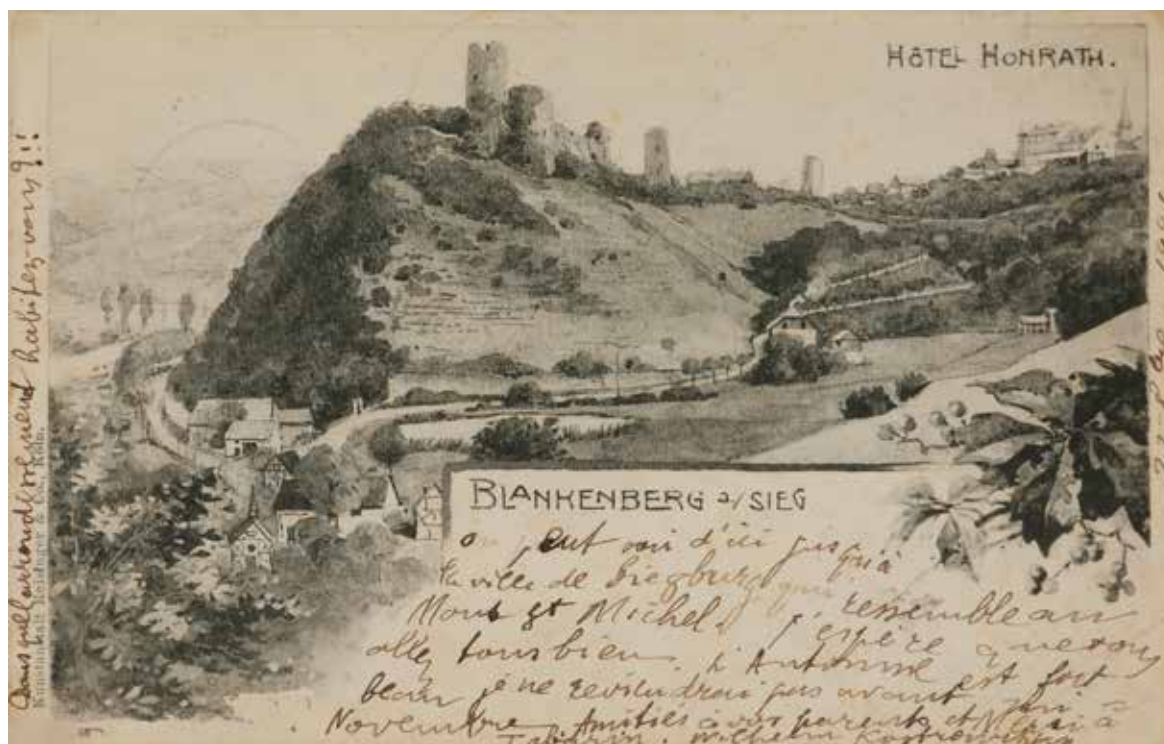 HÔTEL HONRATH.
BLANKENBERG a/ SIEG
on peut voir d'ici jusqu'à
la ville de Siegburg qui
ressemble au
Mont St Michel. j'espère que vous
allez tous bien. L'Automne est fort
beau je ne reviendrai pas avant fin
Novembre. Amitiés à vos parents et
Wilhelm Kostrowitzky
arrondissement habitez-vous ?!!
Kunstanstalt & Co., Köln.